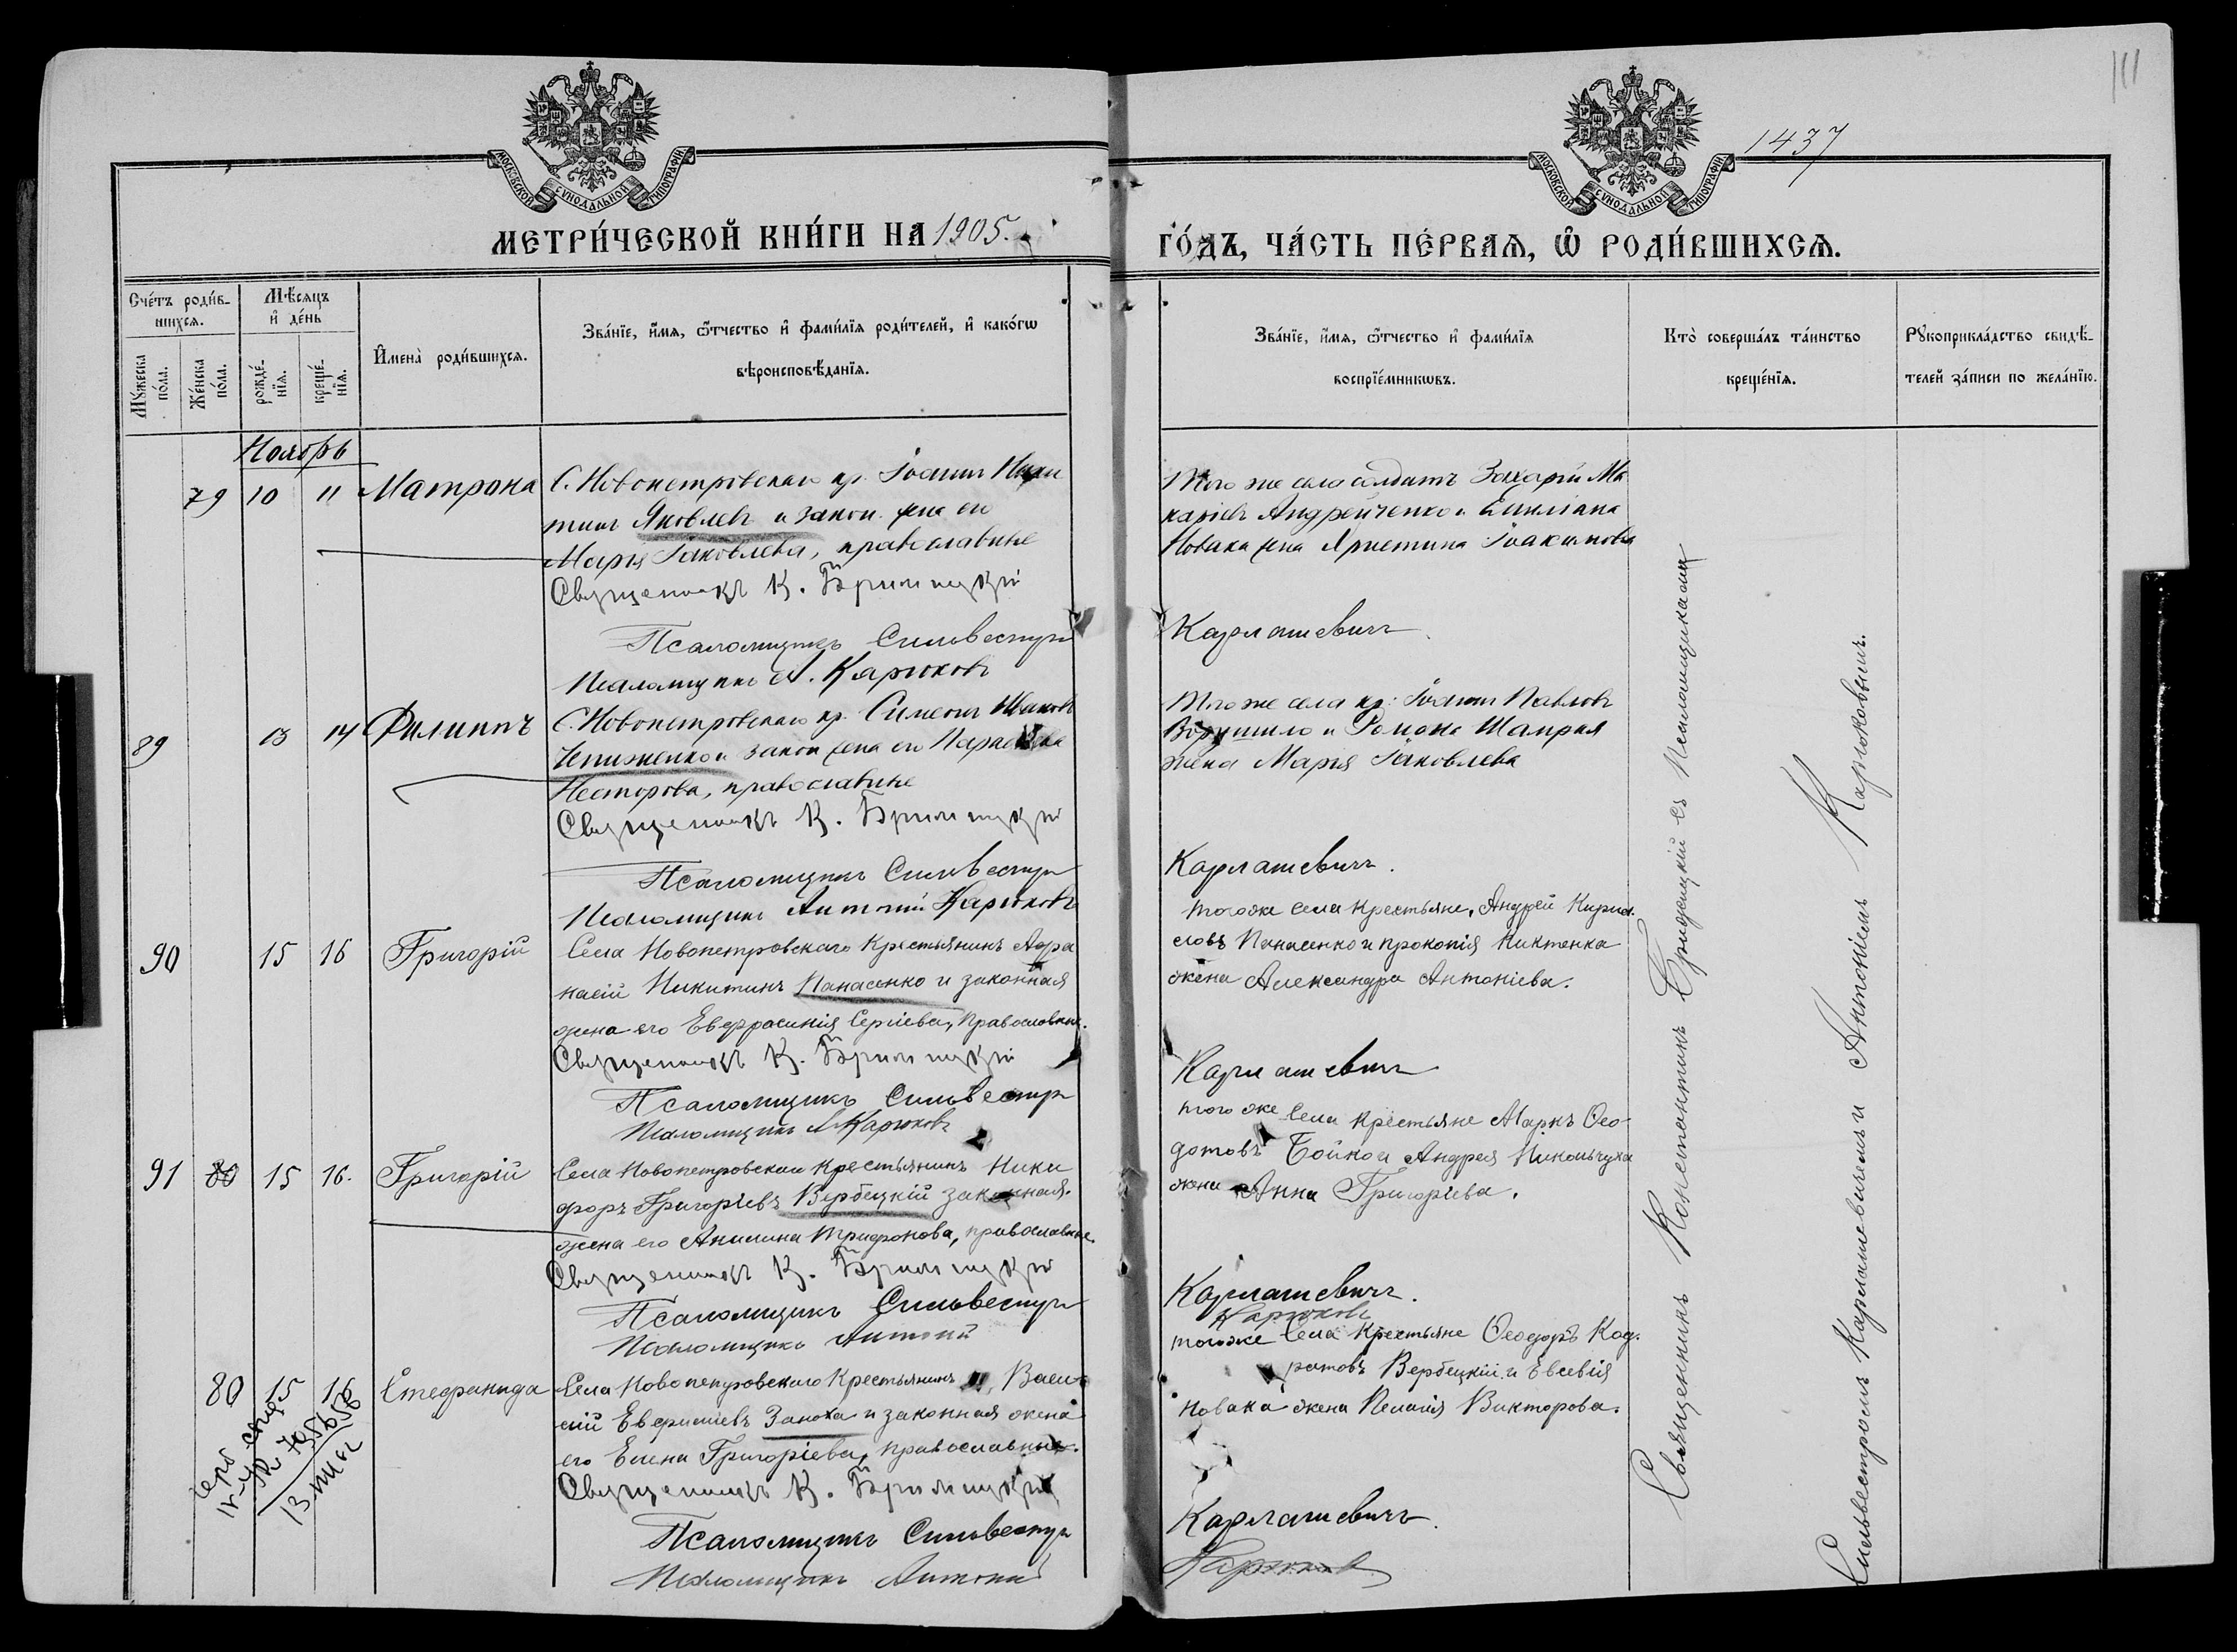 111
1437
МОСКОВСКОЙ СѴНОДАЛЬНОЙ ТИПОГРАФІИ
МОСКОВСКОЙ СѴНОДАЛЬНОЙ ТИПОГРАФІИ
МЕТРИ́ЧЕСКОЙ КНИ́ГИ НА 1905.
ГО́ДЪ, ЧА́СТЬ ПЕ́РВАѦ, Ѡ҆ РОДИ́ВШИХСѦ.
Сче́тъ роди́в-
шихсѧ.
Мꙋ́жеска по́ла.
Же́нска по́ла.
Мѣ́сѧцъ и҆ де́нь
рожде́-нїѧ.
креще́-нїѧ.
И҆мена̀ роди́вшихсѧ.
Зва́нїе, и҆́мѧ, ѻ҆́тчество и҆ фами́лїѧ роди́телей, и҆ како́гѡ
вѣроисповѣ́данїѧ.
Зва́нїе, и҆́мѧ, ѻ҆́тчество и҆ фами́лїѧ
воспрїе́мникѡвъ.
Кто̀ соверша́лъ та́инство
креще́нїѧ.
Рꙋкоприкла́дство свидѣ́-
телей за́писи по жела́нїю.
Ноябрь
79 10 11 Матрона
С. Новопетровскаго кр. Іоаннъ Ники
тинъ Яковлевъ и закон. жена его
Марія Іаковлева, православные
Священникъ К. Бржезицкій
Псаломщикъ Сильвестръ
Псаломщикъ А. Карюковъ
Того же села солдатъ Захарій Ма
каріевъ Андрейченко и Емиліана
Новака жена Христина Іоакимова
Карлашевичъ
89 13 14 Филиппъ
С. Новопетровскаго кр. Симеонъ
Чепиженко и закон жена его Параскева
Несторова, православные
Священникъ К. Бржезицкій
Псаломщикъ Сильвестръ
Псаломщикъ Антоній Карюковъ
Того же села кр. Іоаннъ Павловъ
Ворушило и Романа Шамрая
жена Марія Іаковлева
Карлашевичъ.
90 15 16 Григорій
Села Новопетровскаго Крестьянинъ Аѳа
насій Никитинъ Панасенко и законная
жена его Евфрасинія Сергіева, Православные.
Священникъ К. Бржезицкій
Псаломщикъ Сильвестръ
Псаломщикъ А Карюковъ
того же села крестьяне, Андрей Кирил-
ловъ Панасенко и прокопія Никтенка
жена Александра Антоніева.
Карлашевичъ
91 80 15 16. Григорій
Села Новопетровскаго Крестьянинъ Ники
форъ Григоріевъ Вербецкій законная.
жена его Акилина Трифонова, православные.
Священникъ К. Бржезицкій
Псаломщикъ Сильвестръ
Псаломщикъ Антоній
того же Села крестьяне Маркъ Ѳео-
дотовъ Бойко и Андрея Никольчука
жена Анна Григоріева.
Карлашевичъ.
Карюковъ
80 15 16 Стефанида
Села Новопетровскаго Крестьянинъ Васи-
лій Евфиміевъ Заноха и законная жена
его Елена Григоріева, православные.
Священникъ К. Бржезицкій
Псаломщикъ Сильвестръ
Псаломщикъ Антоній
того же Села Крестьяне Ѳеодоръ Код-
ратовъ Вербецкій и Евсевія
Новака жена Пелагія Викторова.
Карлашевичъ.
Карюковъ
Священникъ Константинъ Бржезицкій съ Псаломщиками
Сильвестромъ Карлашевичемъ и Антоніемъ Карюковымъ.